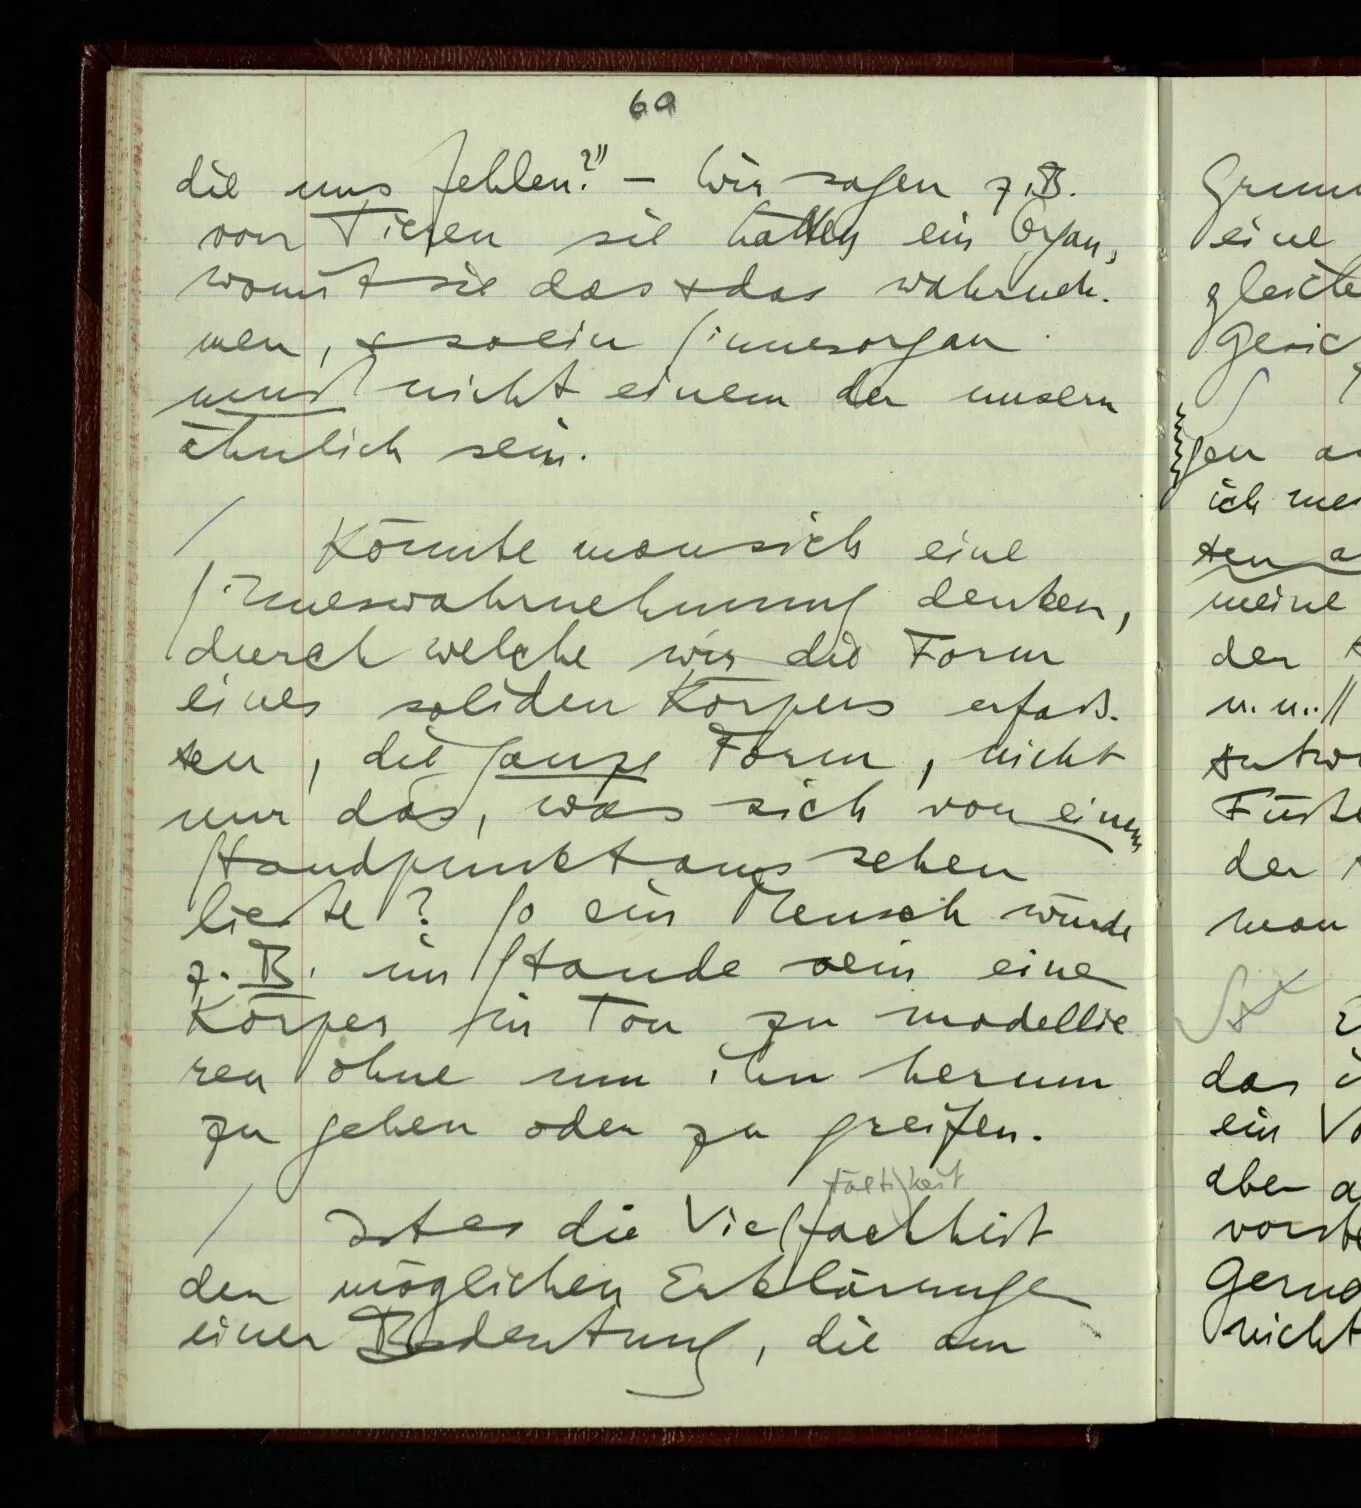 69
die uns fehlen?" – Wir sagen z.B.
von Tieren sie hätten ein Organ,
womit sie das & das wahrneh-
men, & so ein Sinnesorgan
muß nicht einem der unsern
ähnlich sein.
/ Könnte man sich eine
Sinneswahrnehmung denken,
durch welche wir die Form
eines soliden Körpers erfaß-
ten, die ganze Form, nicht
nur das, was sich von einem
Standpunkt aus sehen
ließe? So ein Mensch würde
z.B. im Stande sein eine
Körper in Ton zu modellie
ren ohne um ihn herum
zu gehen oder zu greifen.
fältigkeit
/ Ist es die Vielfachheit
der möglichen Erklärunge
einer Bedeutung, die am
Grun
eine
gleiche
Gesic
gen
ich mei
ten
meine
der
u.u.
Antwo
der
man
das
ein Vo
aber a
vorste
Geruc
nicht